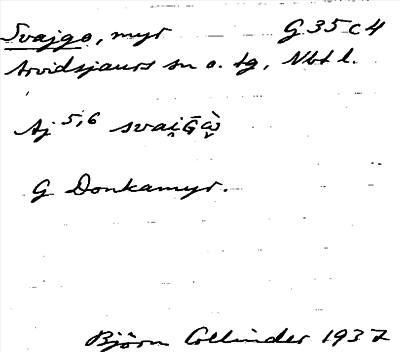 Svajgo, myr G 35 c 4
Arvidsjaurs sn o. tg, Nbt l.
Aj 5,6 svai̯G̅ὼ̬
G Donkamyr.
Björn Collinder 1937